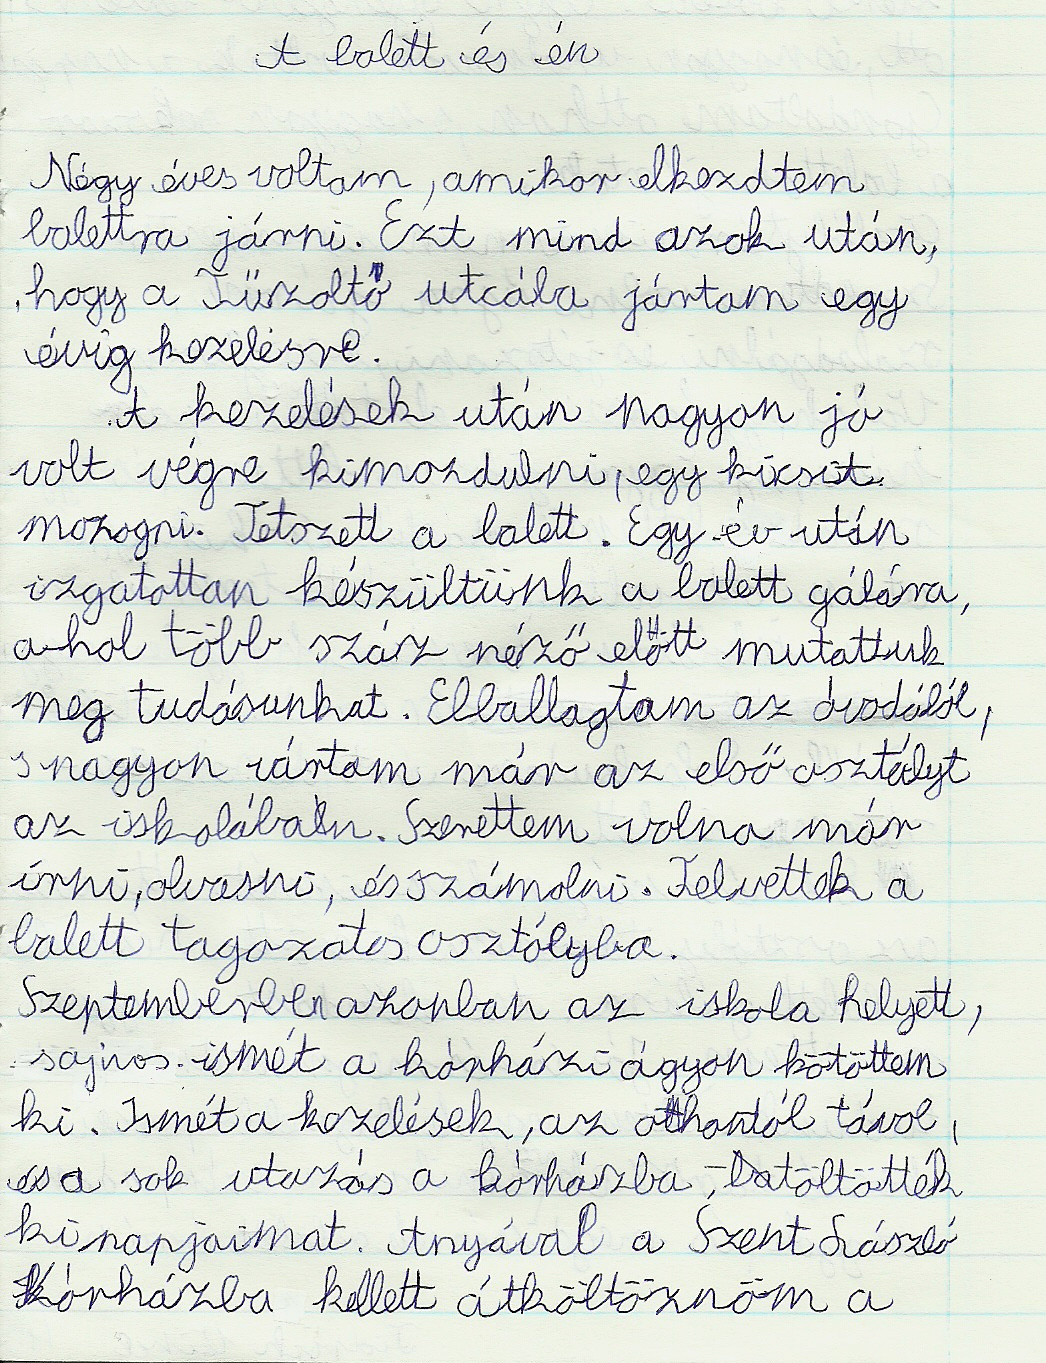 A balett és én
Négy éves voltam, amikor elkezdtem
balettra járni. Ezt mind azok után,
hogy a Tűzoltó utcába jártam egy
évig kezelésre.
A kezelések után nagyon jó
volt végre kimozdulni, egy kicsit
mozogni. Tetszett a balett. Egy év után
izgatottan készültünk a balett gálára,
ahol több száz néző előtt mutattuk
meg tudásunkat. Elballagtam az óvodából,
s nagyon vártam már az első osztályt
az iskolában. Szerettem volna már
írni, olvasni, és számolni. Felvettek a
balett tagozatos osztályba.
Szeptemberben azonban az iskola helyett,
sajnos ismét a kórházi ágyon kötöttem
ki. Ismét a kezelések, az otthontól távol,
és a sok utazás a kórházba, töltötték
ki napjaimat. Anyával a Szent László
Kórházba kellett átköltöznöm a